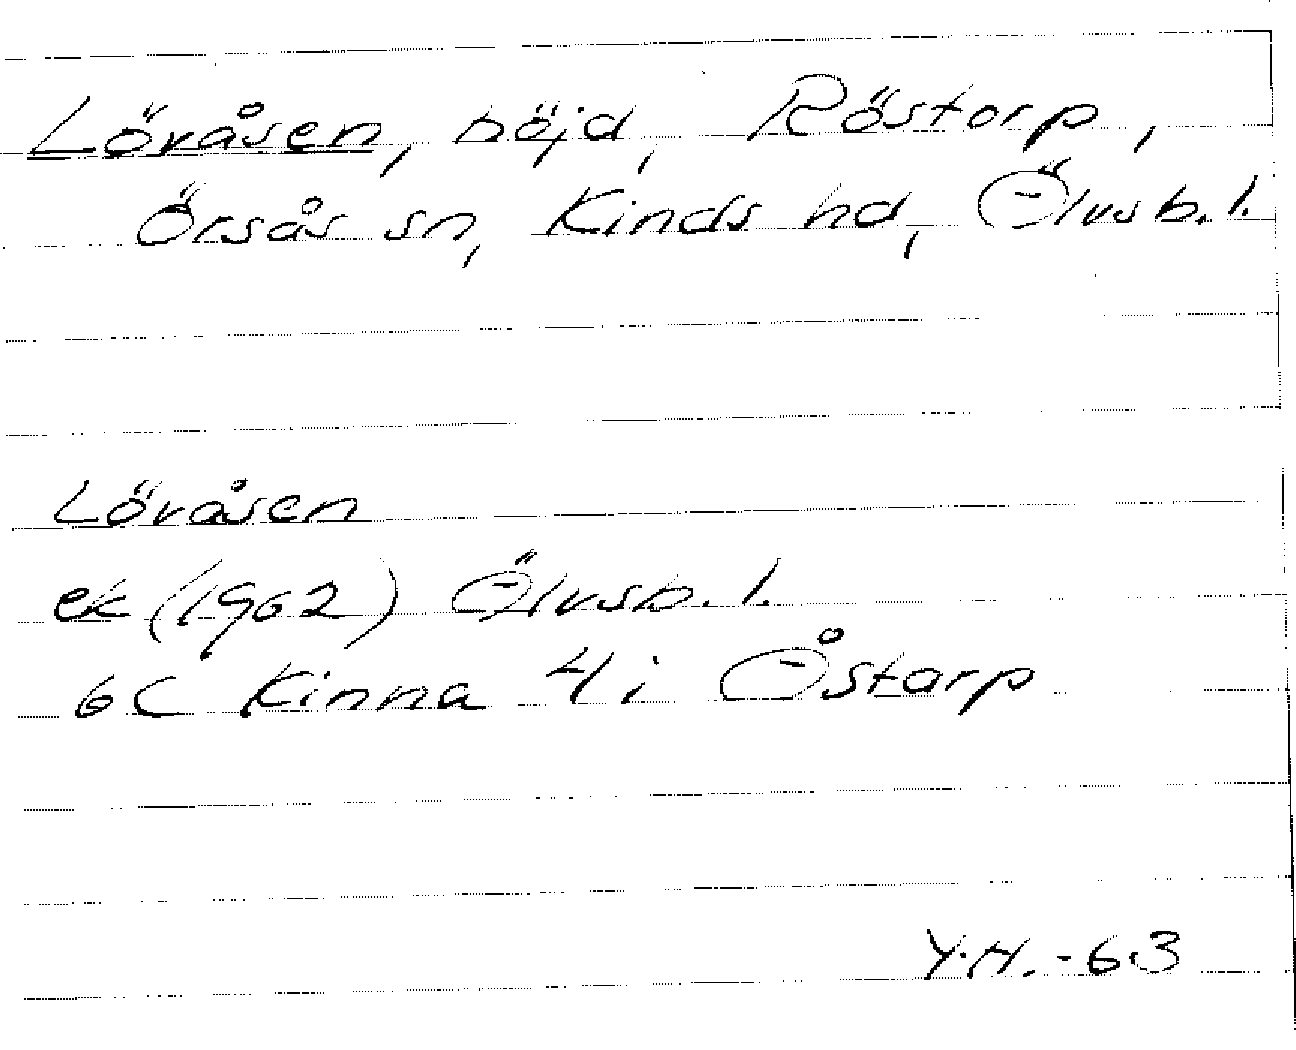 Lövåsen, höjd, Röstorp,
Örsås sn, Kinds hd, Älvsb. l.
Lövåsen
ek (1962) Älvsb. l.
6C Kinna 4i Åstarp
Y.H. -63